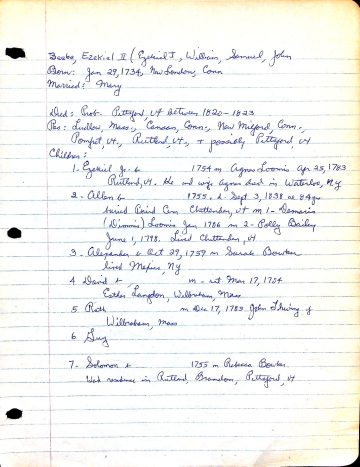 Beebe, Ezekiel II (Ezekiel I, William, Samuel, John
Born: Jan 29, 1734, New London, Conn
Married: Mary
Died: Prob. Pittsford, Vt between 1820-1823
Res: Ludlow, Mass., Canaan, Conn., New Milford, Conn.,
Pomfret, Vt., Rutland, Vt., + possibly Pittsford, Vt
Children:
1- Ezekiel Jr. b 1754 m Agnes Loomis Apr 25, 1783
Rutland, Vt. He and wife Agnes died in Waterloo, NY
2 - Allen b 1755, d. Sept 3, 1838 ae 84 yr
buried Baird Cem. Chittenden, Vt m 1 - Damaris
(Dimmis) Loomis Jan 1786 m 2 - Polly Bailey
June 1, 1798. Lived Chittenden, Vt
3 - Alexander b Oct 29, 1757 m Sarah Bowker
lived NY
4 David b m - int Mar 17, 1784
Esther Langdon, Wilbraham, Mass
5 Ruth m Dec 17, 1783 John of
Wilbraham, Mass
6 Guy
7- Solomon b 1755 m Rebecca Bowker
Had residence in Rutland, Brandon, Pittsford, Vt